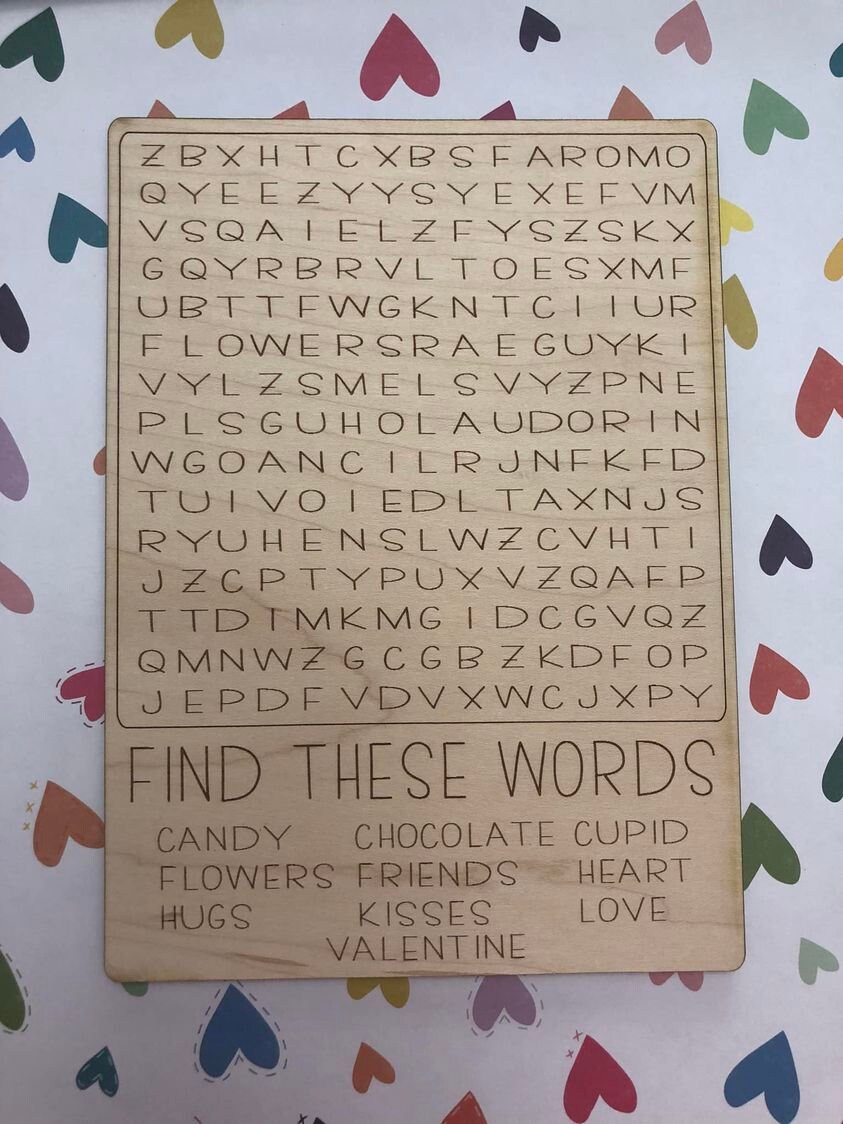 Z B X H T C X B S F A R O M O
Q Y E E Z Y Y S Y E X E F V M
V S Q A I E L Z F Y S Z S K X
G Q Y R B R V L T O E S X M F
U B T T F W G K N T C I I U R
F L O W E R S R A E G U Y K I
V Y L Z S M E L S V Y Z P N E
P L S G U H O L A U D O R I N
W G O A N C I L R J N F K F D
T U I V O I E D L T A X N J S
R Y U H E N S L W Z C V H T I
J Z C P T Y P U X V Z Q A F P
T T D I M K M G I D C G V Q Z
Q M N W Z G C G B Z K D F O P
J E P D F V D V X W C J X P Y
FIND THESE WORDS
CANDY CHOCOLATE CUPID
FLOWERS FRIENDS HEART
HUGS KISSES LOVE
VALENTINE